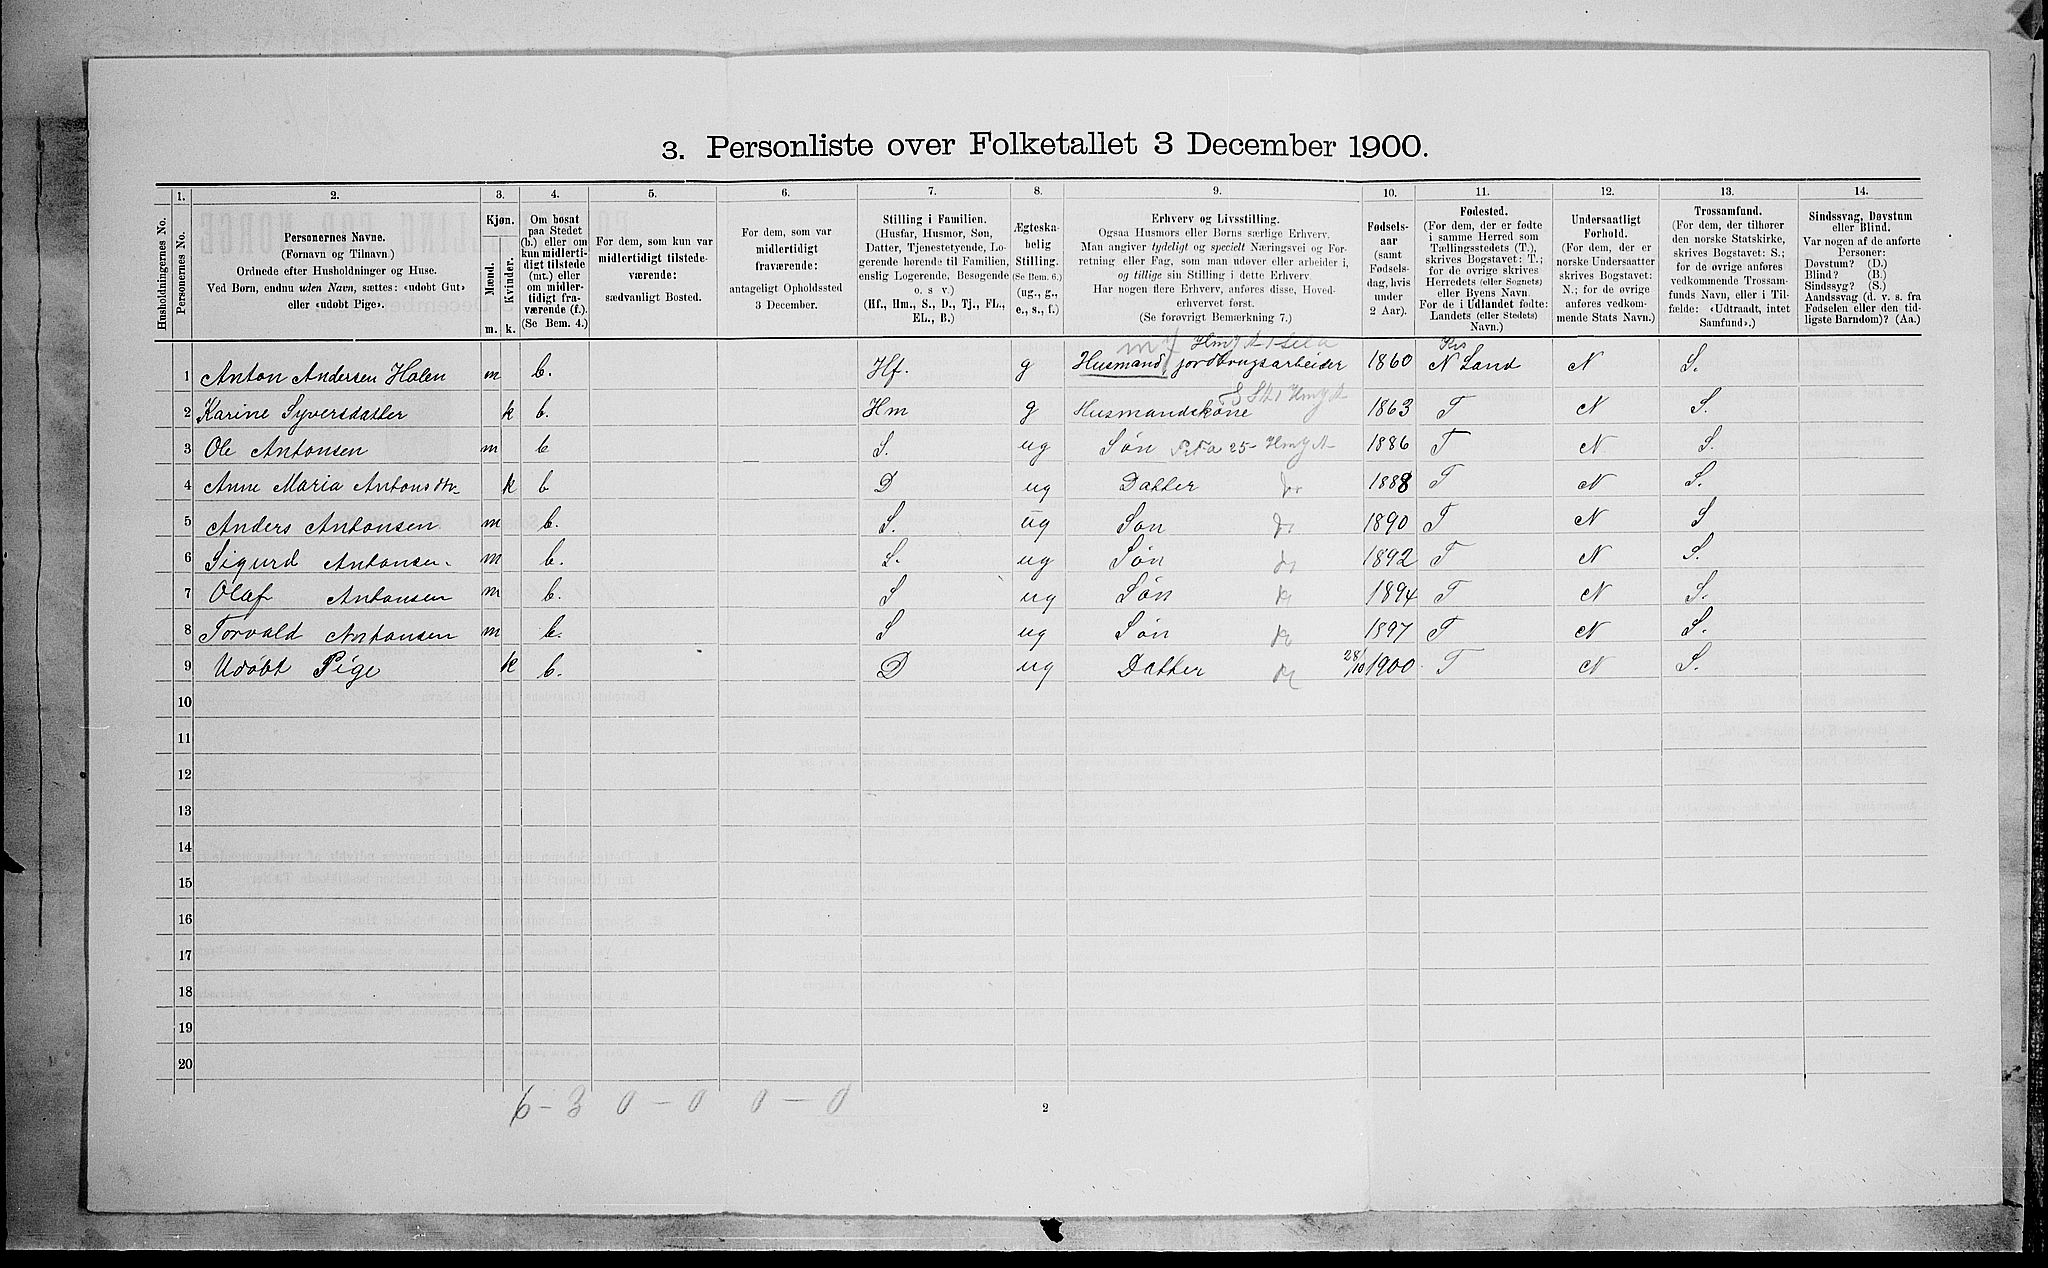 3. Personliste over Folketallet 3 December 1900.
1. 2. 3. 4. 5. 6. 7. 8. 9. 10. 11. 12. 13. 14.
Husholdningernes No.
Personernes No.
Personernes Navne.
(Fornavn og Tilnavn.)
Ordnede efter Husholdninger og Huse.
Ved Børn, endnu uden Navn, sættes: «udøbt Gut»
eller «udøbt Pige».
Kjøn.
Mænd.
Kvinder.
m. k.
Om bosat
paa Stedet
(b.) eller om
kun midlerti-
digt tilstede
(mt.) eller
om midler-
tidigt fra-
værende (f.).
(Se Bem. 4.)
For dem, som kun var
midlertidigt tilstede-
værende:
sædvanligt Bosted.
For dem, som var
midlertidigt
fraværende:
antageligt Opholdssted
3 December.
Stilling i Familien.
(Husfar, Husmor, Søn,
Datter, Tjenestetyende, Lo-
gerende hørende til Familien,
enslig Logerende, Besøgende
o. s. v.)
(Hf., Hm., S., D., Tj., FL.,
EL., B.)
Ægteska-
belig
Stilling.
(Se Bem. 6.)
(ug., g.,
e., s., f.)
Erhverv og Livsstilling.
Ogsaa Husmors eller Børns særlige Erhverv.
Man angiver tydeligt og specielt Næringsvei og For-
retning eller Fag, som man udøver eller arbeider i,
og tillige sin Stilling i dette Erhverv.
Har nogen flere Erhverv, anføres disse, Hoved-
erhvervet først.
(Se forøvrigt Bemærkning 7.)
Fødsels-
aar
(samt
Fødsels-
dag, hvis
under
2 Aar).
Fødested.
(For dem, der er fødte
i samme Herred som
Tællingsstedets (T.),
skrives Bogstavet: T.;
for de øvrige skrives
Herredets (eller Sognets)
eller Byens Navn.
For de i Udlandet fødte:
Landets (eller Stedets)
Navn.)
Undersaatligt
Forhold.
(For dem, der er
norske Undersaatter
skrives Bogstavet:
N.; for de øvrige
anføres vedkom-
mende Stats Navn.)
Trossamfund.
(For dem, der tilhører
den norske Statskirke,
skrives Bogstavet: S.;
for de øvrige anføres
vedkommende Trossam-
funds Navn, eller i Til-
fælde: «Udtraadt, intet
Samfund».)
Sindssvag, Døvstum
eller Blind.
Var nogen af de anførte
Personer:
Døvstum? (D.)
Blind? (B.)
Sindssyg? (S.)
Aandssvag (d. v. s. fra
Fødselen eller den tid-
ligste Barndom)? (Aa.)
1 Anton Andersen Holen m b. Hf. g Husmand, jordbrugsarbeider 1860 N Land N S.
2 Karine Syversdatter k b. Hm g Husmandskone 1863 T N S.
3 Ole Antonsen m b S. ug Søn 1886 T N S.
4 Anne Maria Antonsdtr. k b D ug Datter 1888 T N S.
5 Anders Antonsen m b. S. ug Søn 1890 T N S
6 Sigurd Antonsen m b. S. ug Søn 1892 T N S.
7 Olaf Antonsen m b. S ug Søn 1894 T N S.
8 Torvald Antonsen m b. S ug Søn 1897 T N S.
9 Udøbt Pige k b. D ug Datter 28/10 1900 T N S.
10
11
12
13
14
15
16
17
18
19
20
6 - 3 0 - 0 0 - 0
2